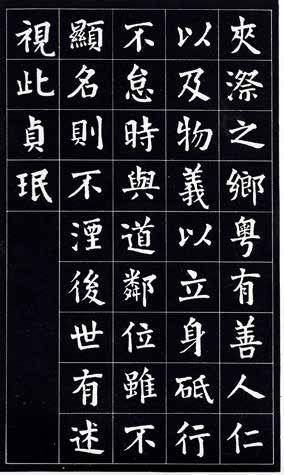 夾漈之鄉粵有善人仁
以及物義以立身砥行
不怠時與道鄰位雖不
顯名則不湮後世有述
視此貞珉